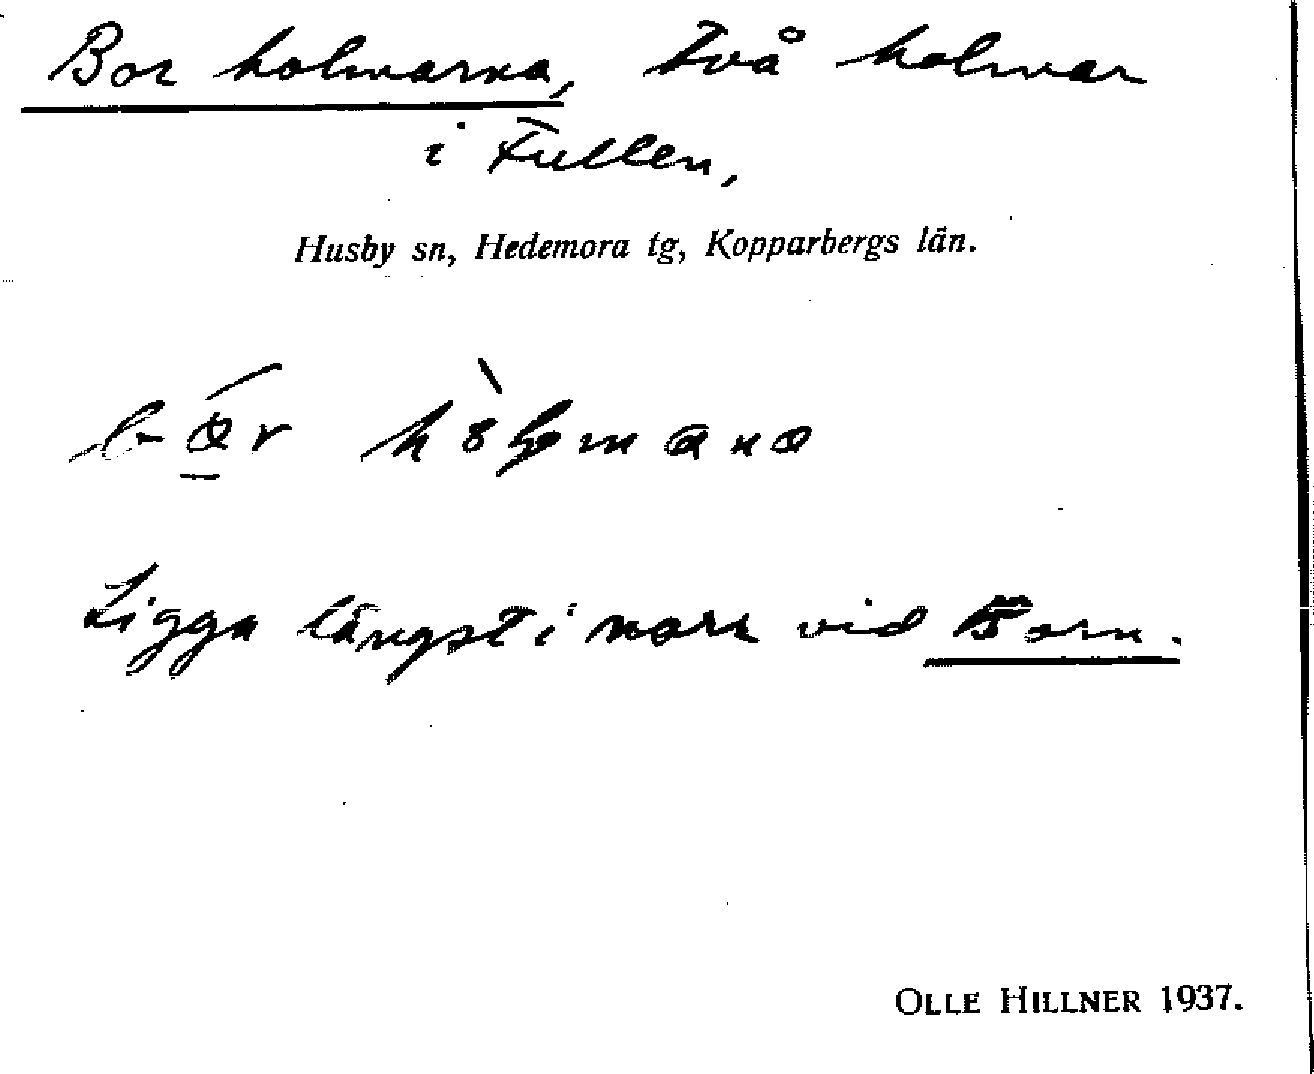 Borholmarna, två holmar
i Fullen,
Husby sn, Hedemora tg, Kopparbergs län.
Ligga längst i norr vid Born.
OLLE HILLNER 1937.